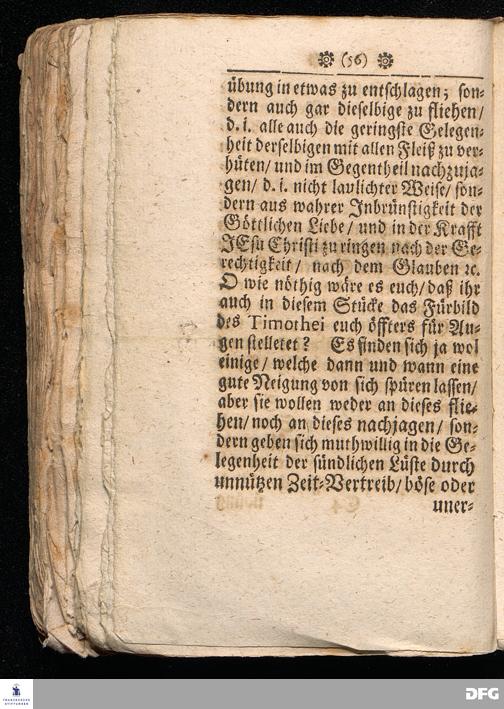 (56)
übung in etwas zu entschlagen; son-
dern auch gar dieselbige zu fliehen/
d. i. alle auch die geringste Gelegen-
heit derselbigen mit allen Fleiß zu ver-
hüten/ und im Gegentheil nachzuja-
gen/ d. i. nicht laulichter Weise/ son-
dern aus wahrer Inbrünstigkeit der
Göttlichen Liebe/ und in der Krafft
JEsu Christi zu ringen nach der Ge-
rechtigkeit/ nach dem Glauben ꝛc.
O wie nöthig wäre es euch/ daß ihr
auch in diesem Stücke das Fürbild
des Timothei euch öffters für Au-
gen stelletet? Es finden sich ja wol
einige/ welche dann und wann eine
gute Neigung von sich spüren lassen/
aber sie wollen weder an dieses flie-
hen/ noch an dieses nachjagen/ son-
dern geben sich muthwillig in die Ge-
legenheit der sündlichen Lüste durch
unnützen Zeit-Vertreib/ böse oder
uner-
FRANCKESCHE
STIFTUNGEN
DFG